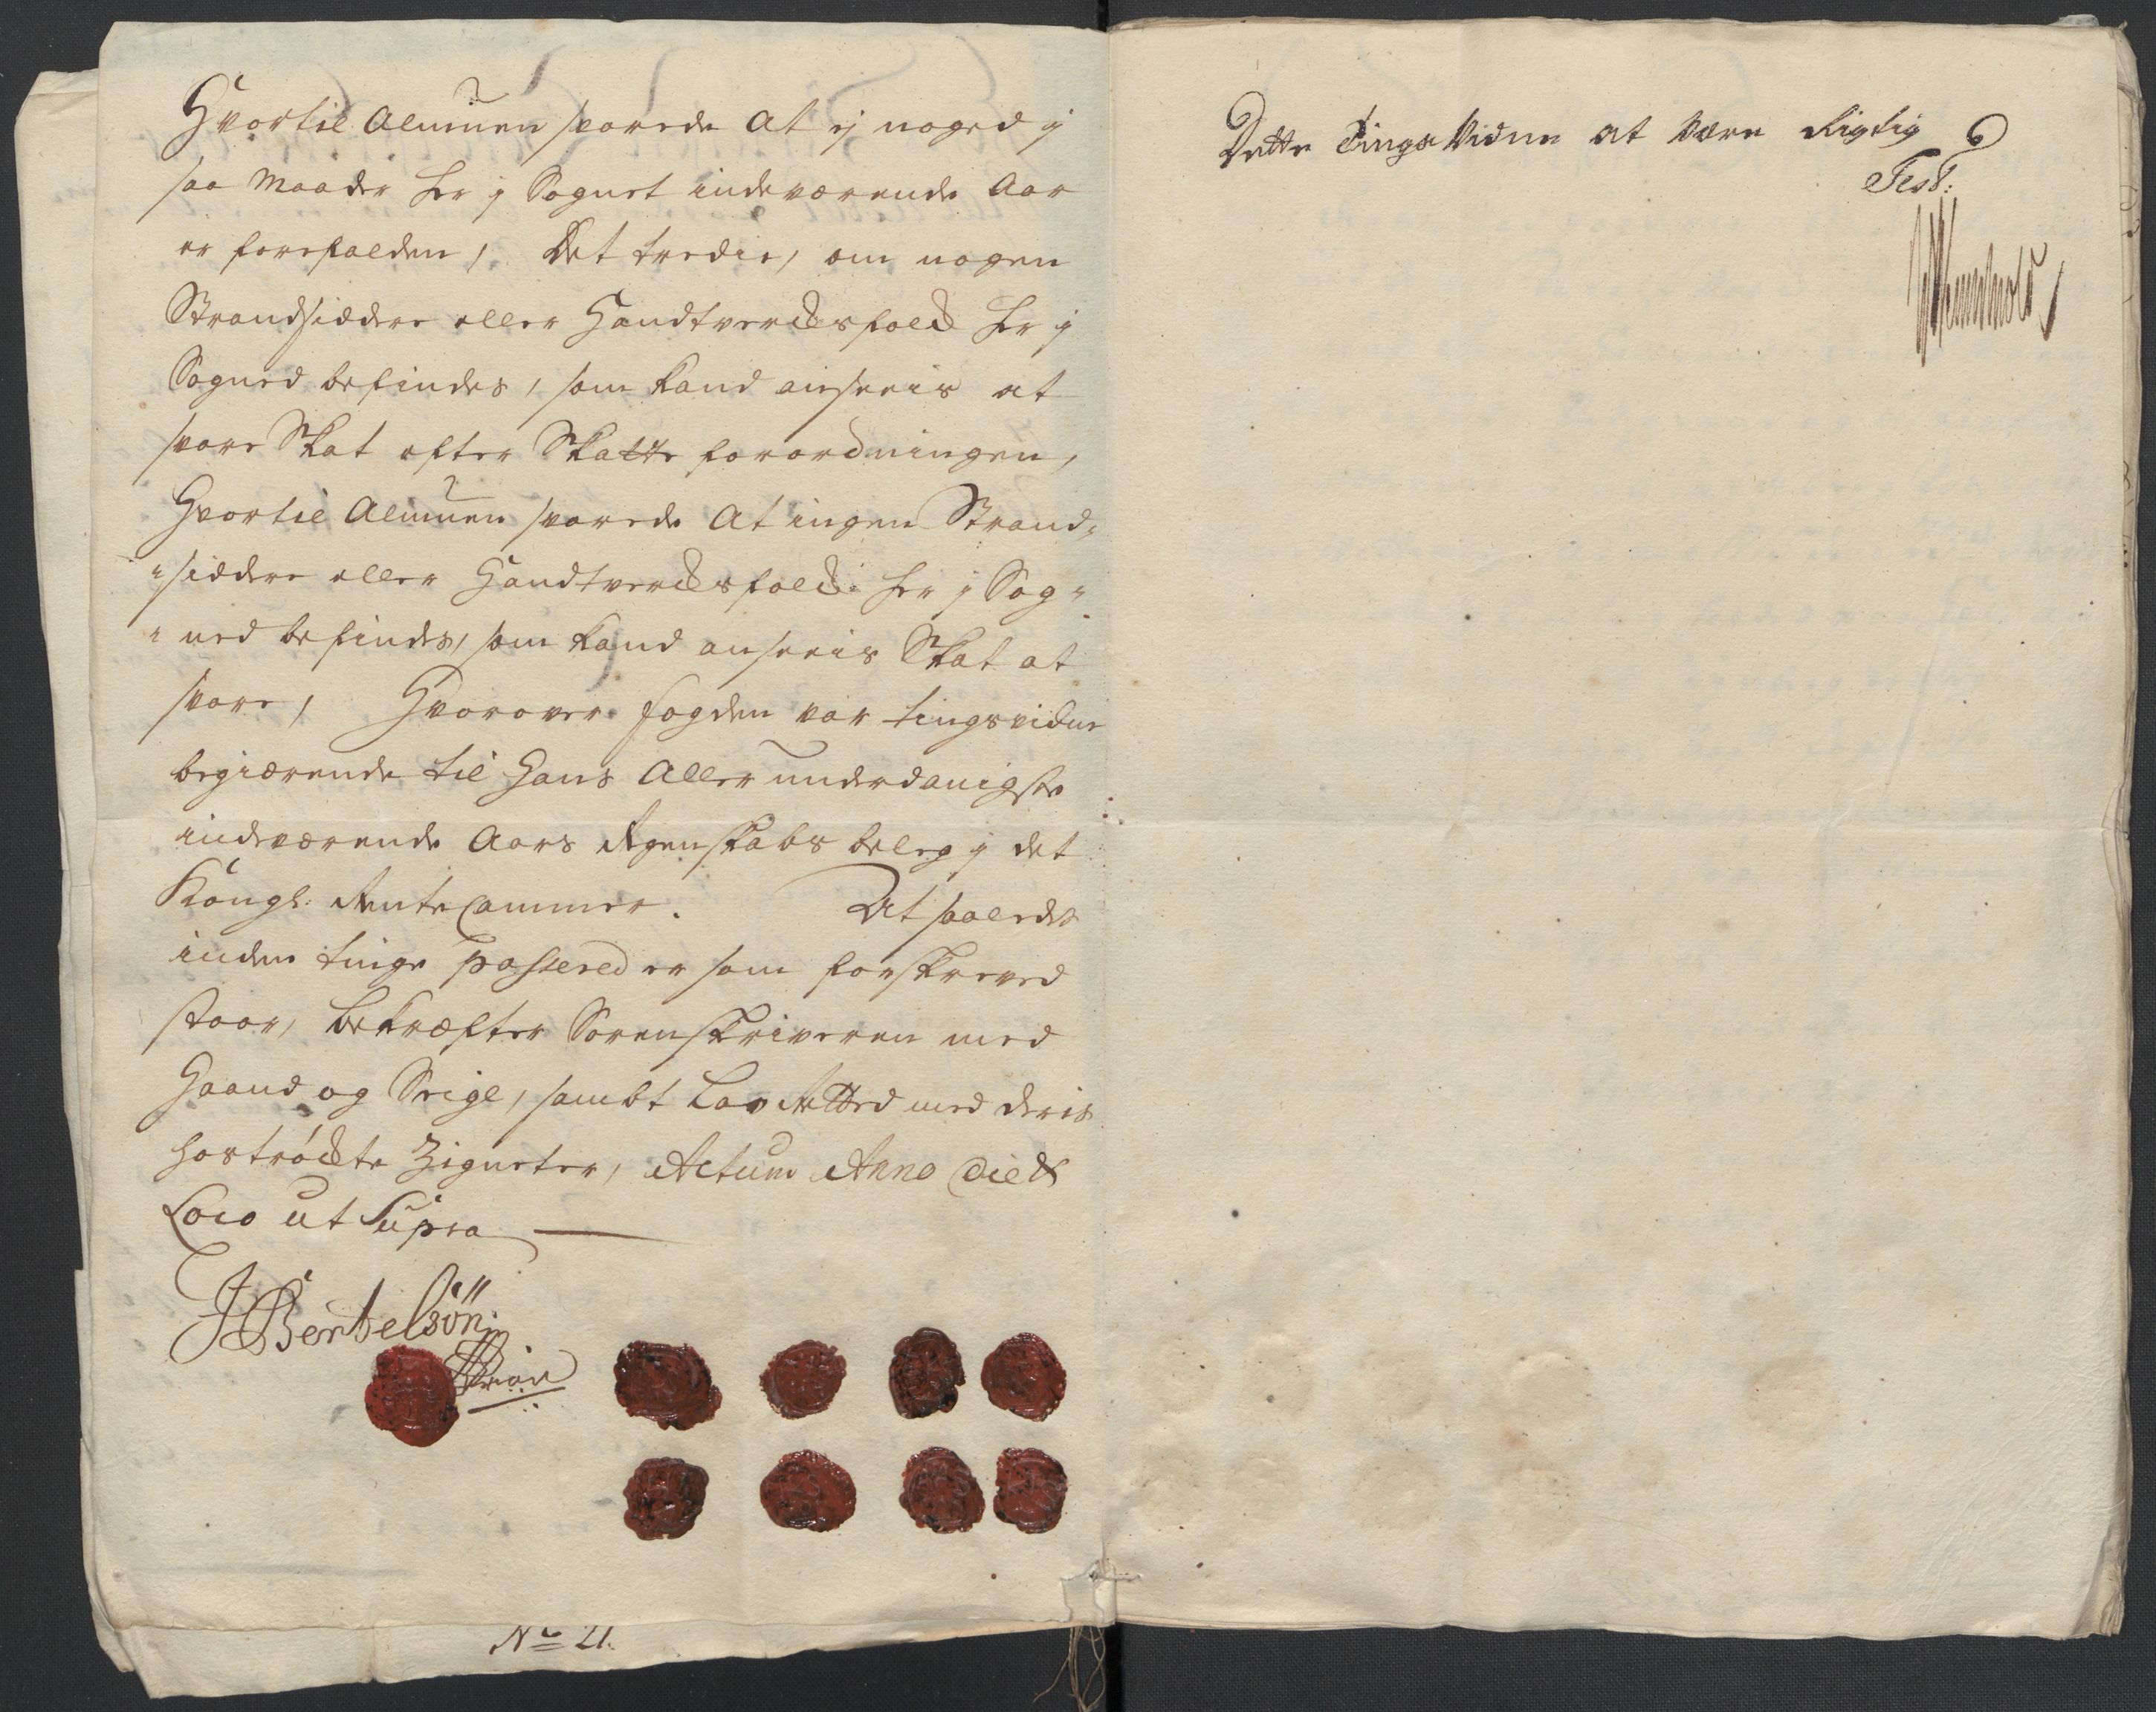 Hvortil Almuen svarede At ej noged j
saa Maader her j Sognet indeværende Aar
er forefalden, Det tredie, om nogen
Strandsiddere eller Handtverksfolck her j
Sogned befindes, som kand ansees at
svare Skat efter Skatte forordningen,
Hvortil Almuen svarede At ingen Strand-
siddere eller Handtverksfolck her j Sog-
ned befindes, som kand anseeis Skat at
svare, Hvorover fogden var tingsvidne
begiærende til Hans Aller underdanigste
indeværende Aars Regenskabs beleg j det
Kongl: Rente Cammer. At saaledes
inden tinge passered er som forskreved
staar, bekræfter Sorenskriveren med
Haand og Seigl, sambt Lav Retted med deris
hostrôckte Zigneter, Actum Anno die &
Loco ut Supra
J Bertelsön
No 21.
Dette Tings Vidne at være Rigtig
Test: